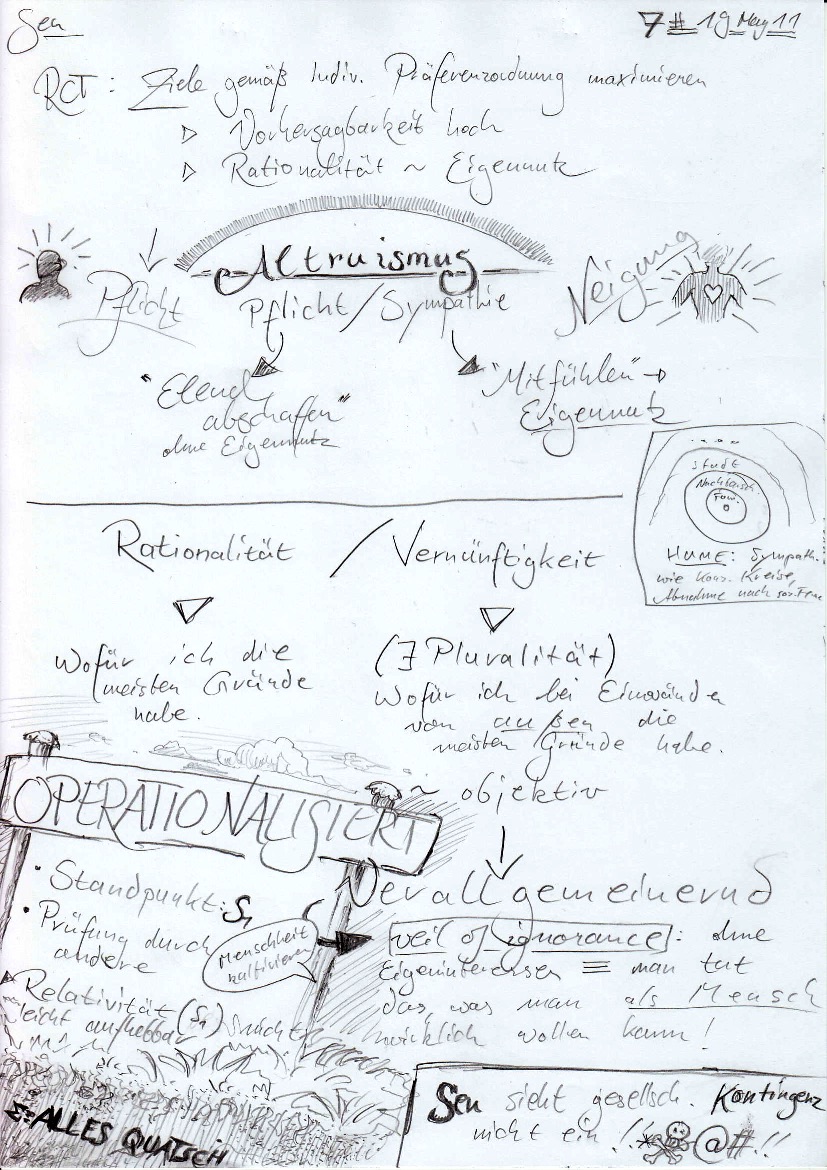 Sen
7# 19 May 11
RCT: Ziele gemäß Indiv. Präferenzordnung maximieren
▷ Vorhersagbarkeit hoch
▷ Rationalität ~ Eigennutz
Altruismus
Pflicht
Pflicht / Sympathie
Neigung
"Elend
abschaffen"
ohne Eigennutz
"Mitfühlen" →
Eigennutz
Stadt
Nachbarsch.
Fam.
HUME: Sympath.
wie konz. Kreise,
Abnahme nach
Rationalität / Vernünftigkeit
Wofür ich die
meisten Gründe
habe.
(∃ Pluralität)
Wofür ich bei Einwänden
von außen die
meisten Gründe habe.
~ objektiv
OPERATIONALISIERT
• Standpunkt: S₁
• Prüfung durch
andere
Relativität (S₁)
leicht aufhebbar
Menschheit
kultivieren
Verallgemeinernd
veil of ignorance: ohne
Eigeninteressen ≡ man tut
das, was man als Mensch
wirklich wollen kann!
Σ: ALLES QUATSCH
Sen sieht gesellsch. Kontingenz
nicht ein !!* @#!!